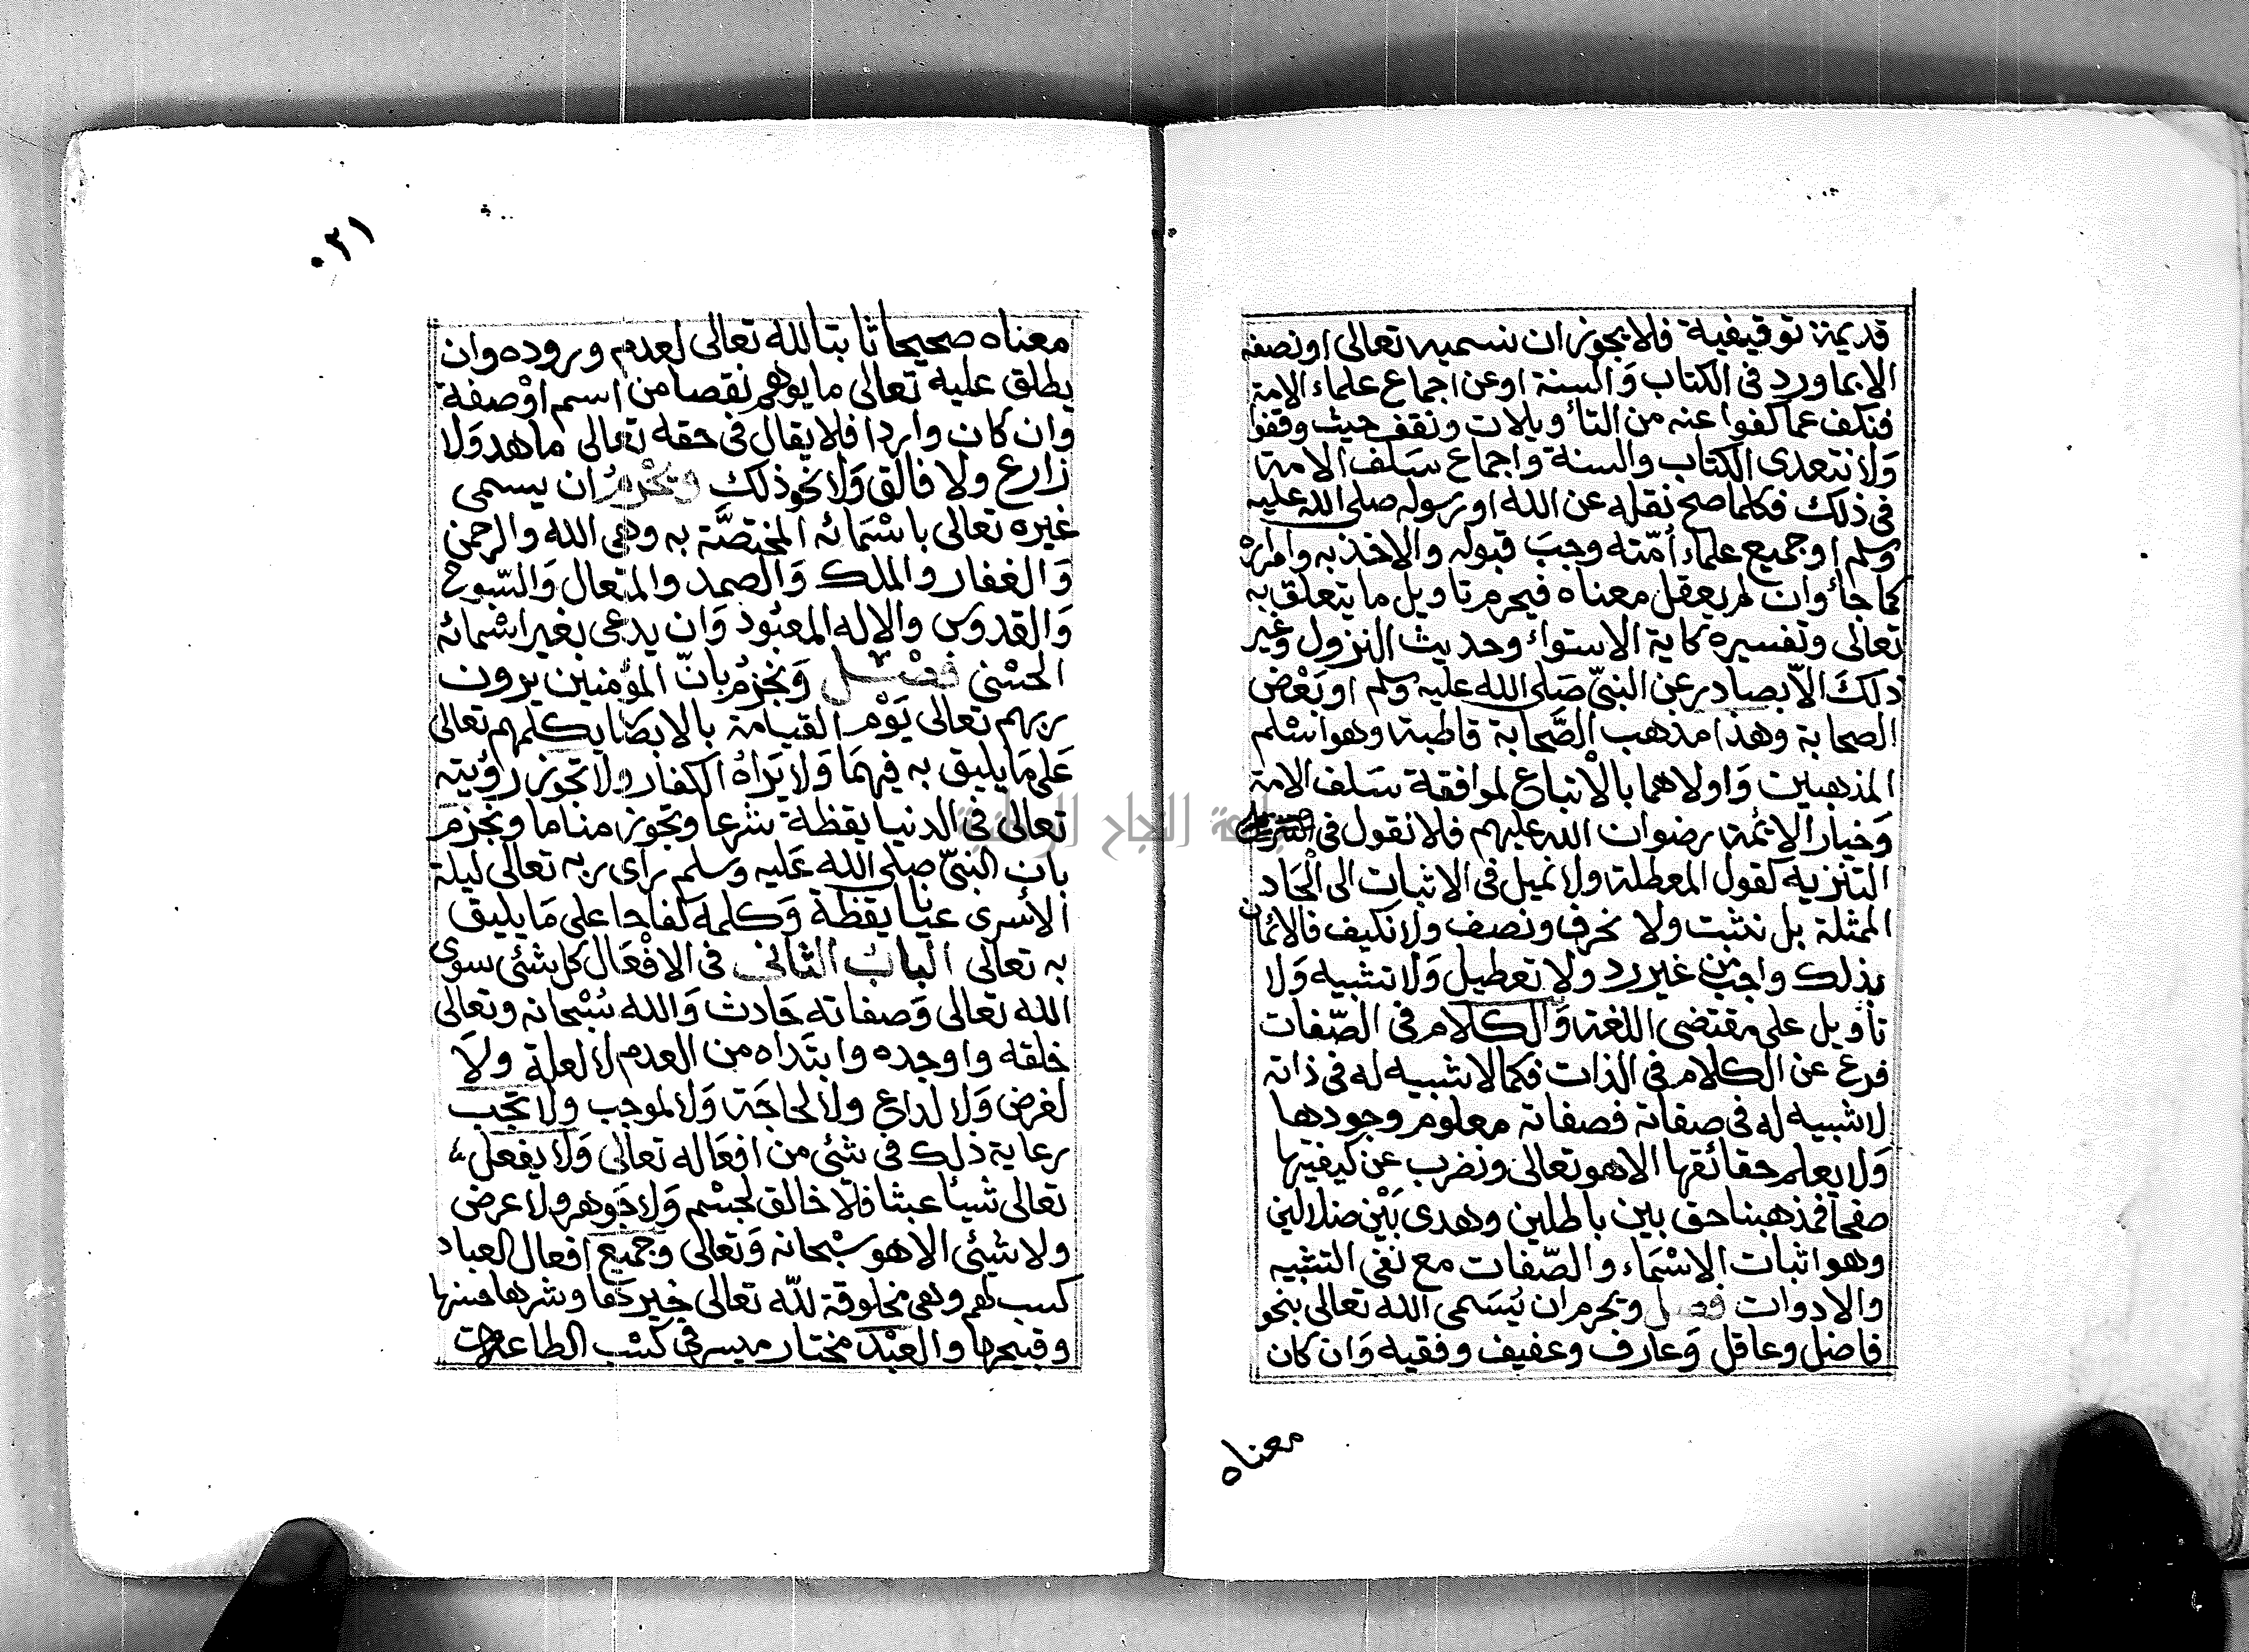 قديمة توقيفية فلا يجوز ان نسميه تعالى او نصفه
الا بما ورد في الكتاب وَالسنة او عن اجماع علماء الامة
فنكف عما كفوا عنه من التأويلات ونقف حيث وقفوا
وَلا نتعدى الكتاب والسنة واجماع سَلف الامة
في ذلك فكلما صح نقله عن الله او رسوله صلى الله عليه
وَسلم او جميع علماء اُمّته وجبَ قبوله والاخذ به وامراره
كما جاء وان لم يعقل معناه فيحرم تاويل ما يتعلق به
تعالى وتفسيره كاية الاستواء وحديث النزول وغير
ذلكَ الاّ بصادر عن النبيّ صَلى الله عليه وسَلم او بَعْض
الصحابة وهذا مذهب الصَّحابة قاطبة وهو اسْلم
المذهبين وَاولاهما بالْاتباع لموافقة سَلف الامة
وَخيار الائمة رضوان الله عليهم فلا نقول في
التنزيه كقول المعطلة ولا نميل في الاثبات الى الْحَاد
الممثلة بل نثبت ولا نحرف ونصف ولا نكيف فالائمان
بذلك واجبٌ من غير رد ولا تعطيل وَلا تشبيه وَلا
تأويل على مقتضى اللغة وَالكلام في الصّفات
فرع عن الكلام في الذات فكما لا شبيه له في ذاته
لا شبيه له في صفاته فصفاته معلوم وجودها
وَلا يعلم حقائقها الا هو تعالى ونضرب عن كيفيتها
صفحا فمذهبنا حق بين باطلين وهدى بَيْن ضلالين
وهو اثبات الاسْمَاء والصّفات مع نفي التشبيه
والادوات فصل ويحرم ان يُسَمى الله تعالى بنحو
فاضل وعاقل وَعارف وعفيف وفقيه وَان كان
معناه
٠٣١
معناه صحيحا ثابتا لله تعالى لعدم وروده وان
يطلق عليه تعالى ما يوهم نقصا من اسم اوْ صفة
وان كان واردا فلا يقال في حقه تعالى ماهد وَلا
زارع ولا فالق وَلا نحو ذلك ويَحْرُمُ ان يسمى
غيره تعالى باسْمَائه المختصَّة به وهي الله والرحمن
وَالغفار والملك وَالصمد والمتعال وَالسّبوح
وَالقدوس والاله المعبُود وَان يدعى بغير اسْمائه
الحسْنى فصْل وَنجزمُ بانّ المؤمنين يرون
ربهم تعالى يَوْم القيامة بالابصَا يكلمهم تعالى
عَلى مَا يليق به فيهمَا وَلا يَرَاهُ الكفار ولا تجوز رؤيته
تعالى في الدنيا يقظة شرعا وتجوز مناما ونجزم
بان النبيّ صلى الله عَليه وسَلم راى ربه تعالى ليلة
الاسْرى عيَانا يقظة وَكلمه كفاحا على مَا يليق
به تعالى البابُ الثانى في الافْعَال كل شئى سوى
الله تعالى وَصفاته حَادث وَالله سُبْحانه وتعالى
خلقه واوجده وابتَداه من العدم لا لعلة ولَا
لغرض وَلا لداع ولا لحاجَة وَلا لموجب ولا تجب
رعاية ذلك في شئى من افعَاله تعالى وَلا يفعل
تعالى شيئا عبثا فلا خالق لجسْم وَلا جَوهر ولا عرض
ولا شيئى الا هو سبْحانه وَتعالى وَجميع افعال العباد
كسب لهم وهى مخلوقة للّه تعالى خيرهَا وشرها حسنها
وقبيحها والعبْد مختار ميسر في كسْب الطاعات